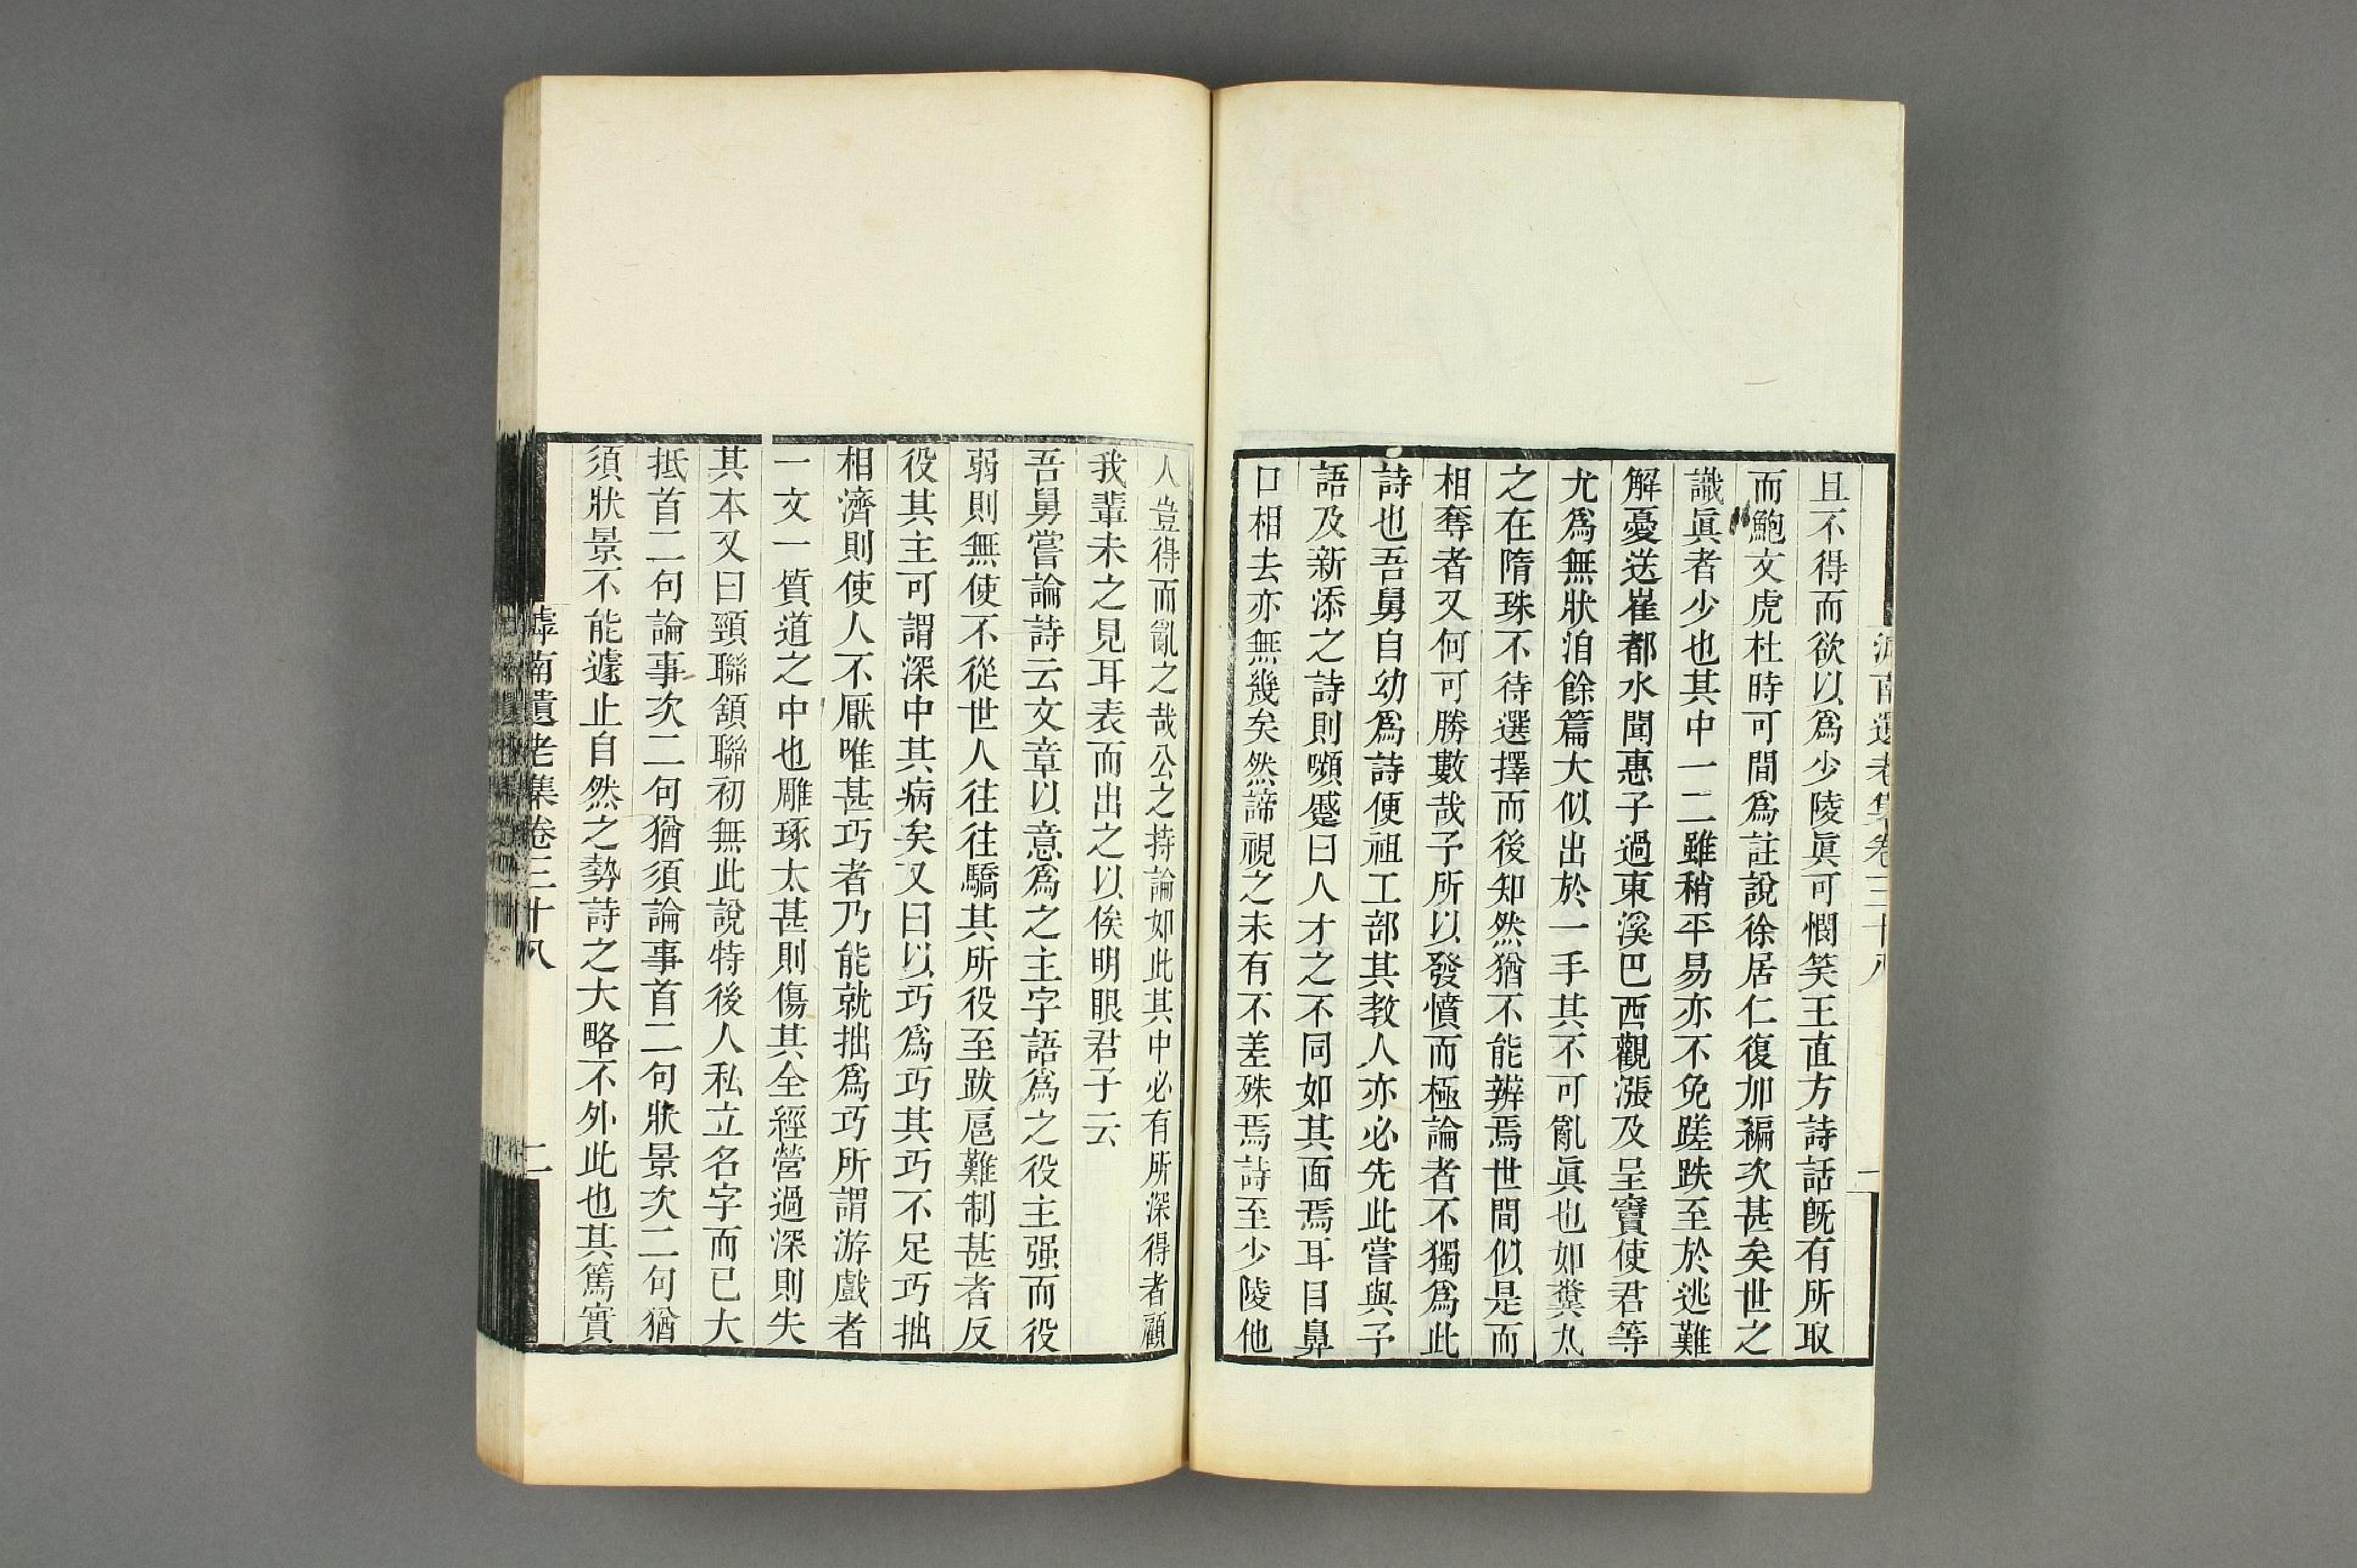 滹南遺老集卷三十八
一
且不得而欲以爲少陵眞可憫笑王直方詩話旣有所取
而鮑文虎杜時可間爲註說徐居仁復加編次甚矣世之
識眞者少也其中一二雖稍平易亦不免蹉跌至於逃難
解憂送崔都水聞惠子過東溪巴西觀漲及呈竇使君等
尤爲無狀洎餘篇大似出於一手其不可亂眞也如糞丸
之在隋珠不待選擇而後知然猶不能辨焉世間似是而
相奪者又何可勝數哉予所以發憤而極論者不獨爲此
詩也吾舅自幼爲詩便祖工部其教人亦必先此嘗與予
語及新添之詩則嚬蹙曰人才之不同如其面焉耳目鼻
口相去亦無幾矣然諦視之未有不差殊焉詩至少陵他
人豈得而亂之哉公之持論如此其中必有所深得者顧
我輩未之見耳表而出之以俟明眼君子云
吾舅嘗論詩云文章以意爲之主字語爲之役主强而役
弱則無使不從世人往往驕其所役至跋扈難制甚者反
役其主可謂深中其病矣又曰以巧爲巧其巧不足巧拙
相濟則使人不厭唯甚巧者乃能就拙爲巧所謂游戲者
一文一質道之中也雕琢太甚則傷其全經營過深則失
其本又曰頸聯頷聯初無此說特後人私立名字而已大
抵首二句論事次二句猶須論事首二句狀景次二句猶
須狀景不能遽止自然之勢詩之大略不外此也其篤實
滹南遺老集卷三十八
二